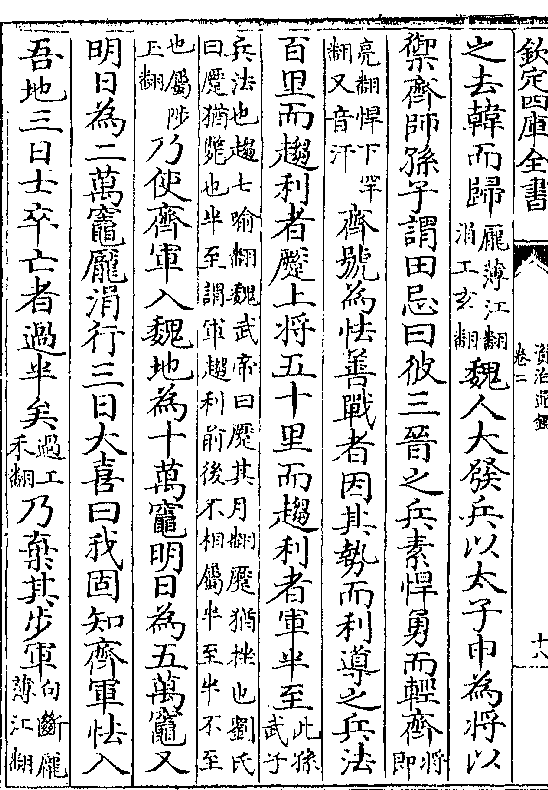 欽定四庫全書
資治通鑑
卷二
十八
之去韓而歸龐薄江翻涓工玄翻魏人大發兵以太子申為將以
禦齊師孫子謂田忌曰彼三晉之兵素悍勇而輕齊將即
亮翻悍下罕翻又音汗齊號為怯善戰者因其勢而利導之兵法
百里而趨利者蹷上將五十里而趨利者軍半至此孫武子
兵法也趨七喻翻魏武帝曰蹷其月翻蹷猶挫也劉氏曰蹷猶斃也半至謂軍趨利前後不相屬半至半不至
也屬陟玉翻乃使齊軍入魏地為十萬竈明日為五萬竈又
明日為二萬竈龐涓行三日大喜曰我固知齊軍怯入
吾地三日士卒亡者過半矣過工禾翻乃棄其步軍句斷龐薄江翻